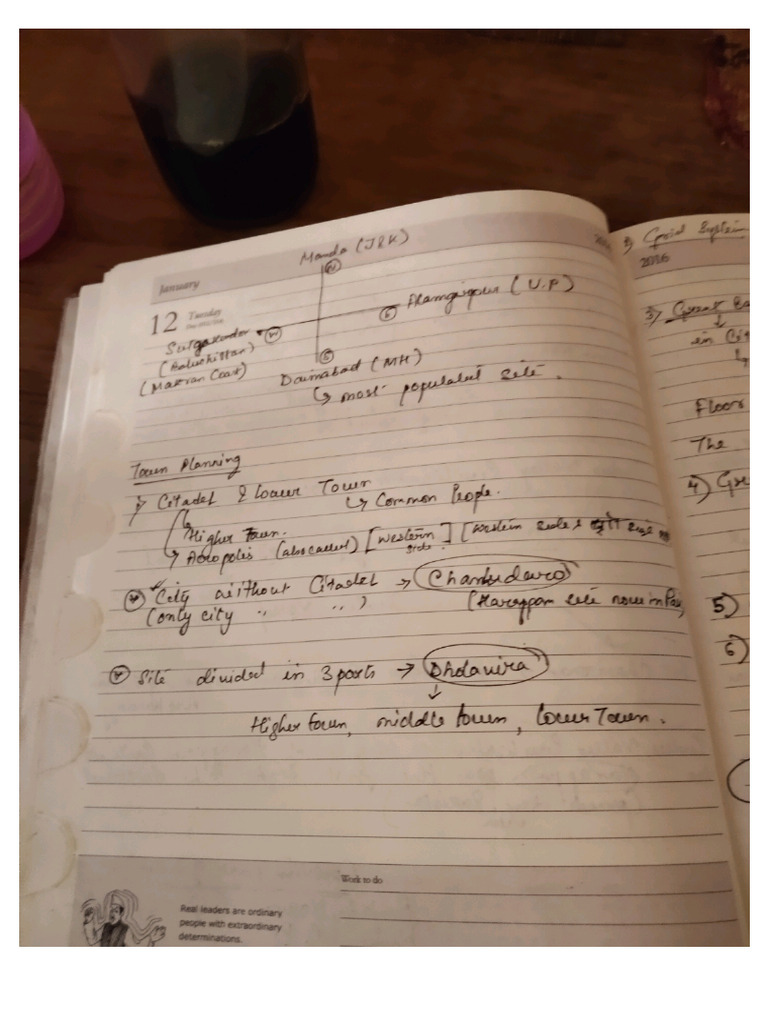 Manda (J&K)
N
January
12 Tuesday
Alamgirpur (U.P)
E
W
(Baluchistan)
(Makran Coast)
S
Daimabad (MH)
↳ most populated site.
Town Planning
1) Citadel & Lower Town
↳ Common People.
↳ Higher Town.
→ Acropolis (also called) [Western side]
* City without Citadel → Chanhudaro
(only city " " )
(Harappan site now in
* Site divided in 3 parts → Dholavira
↓
Higher town, middle town, lower Town.
Work to do
Real leaders are ordinary
people with extraordinary
determinations.
2016
3) Great
↓
in
Floor
The
4)
5)
6)